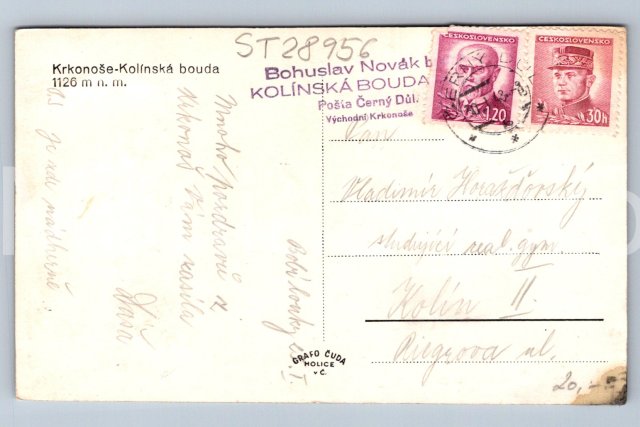 ST28956
Krkonoše-Kolínská bouda
1126 m n. m.
Bohuslav Novák
KOLÍNSKÁ BOUDA
Pošta Černý Důl.
Východní Krkonoše
ČESKOSLOVENSKO
1.20
ČESKOSLOVENSKO
30h
Mnoho pozdravů z
Krkonoš Vám zasílá
Vláďa
Je zde nádherně.
Pan
Vladimír Horažďovský
studující real. gym.
Kolín II.
Riegrova ul.
GRAFO ČUDA
HOLICE
v Č.
20,-